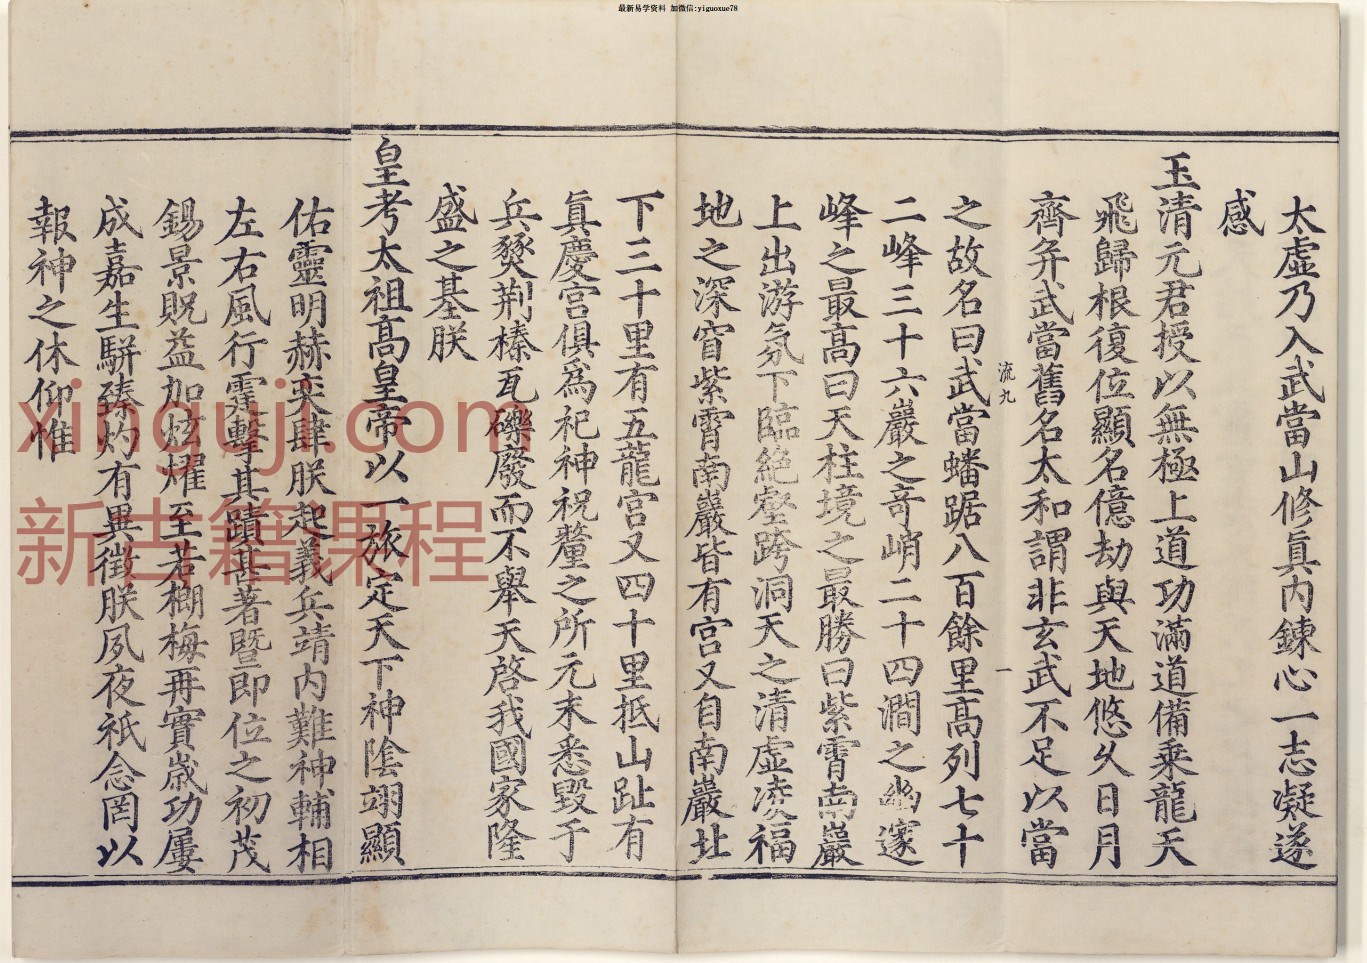 最新易学资料 加微信:yiguoxue78
太虛乃入武當山修眞内鍊心一志凝遂
感
玉清元君授以無極上道功滿道備乘龍天
飛歸根復位顯名億劫與天地悠久日月
齊弁武當舊名太和謂非玄武不足以當
流九
一
之故名曰武當蟠踞八百餘里高列七十
二峰三十六巖之奇峭二十四澗之幽邃
峰之最高曰天柱境之最勝曰紫霄南巖
上出游氛下臨絶壑跨洞天之清虚凌福
地之深窅紫霄南巖皆有宫又自南巖北
下三十里有五龍宫又四十里抵山趾有
眞慶宫俱爲祀神祝釐之所元末悉毀于
兵燹荆榛瓦礫廢而不舉天啓我國家隆
盛之基朕
皇考太祖高皇帝以一旅定天下神陰翊顯
佑靈明赫奕肆朕起義兵靖内難神輔相
左右風行霆擊其蹟甚著暨即位之初茂
錫景貺益加炫燿至若榔梅再實歲功屢
成嘉生駢臻灼有異徵朕夙夜祇念罔以
報神之休仰惟
xinguji.com
新古籍课程